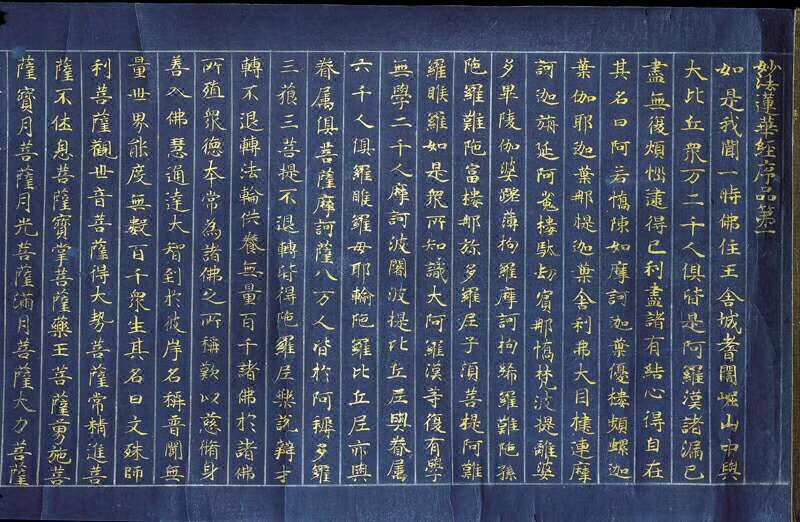 妙法蓮華經序品第一
如是我聞一時佛住王舍城耆闍崛山中與
大比丘眾万二千人俱皆是阿羅漢諸漏已
盡無復煩惱逮得己利盡諸有結心得自在
其名曰阿若憍陳如摩訶迦葉優樓頻螺迦
葉伽耶迦葉那提迦葉舍利弗大目揵連摩
訶迦旃延阿㝹樓馱劫賓那憍梵波提離婆
多畢陵伽婆蹉薄拘羅摩訶拘絺羅難陁孫
陁羅難陁富樓那弥多羅尼子須菩提阿難
羅睺羅如是衆所知識大阿羅漢等復有學
無學二千人摩訶波闍波提比丘尼與眷属
六千人俱羅睺羅母耶輸陁羅比丘尼亦與
眷属俱菩薩摩訶薩八万人皆於阿耨多羅
三藐三菩提不退轉皆得陁羅尼樂說辯才
轉不退轉法輪供養無量百千諸佛於諸佛
所殖衆德本常為諸佛之所稱歎以慈脩身
善入佛慧通達大智到於彼岸名稱普聞無
量世界能度無數百千衆生其名曰文殊師
利菩薩觀世音菩薩得大勢菩薩常精進菩
薩不休息菩薩寶掌菩薩藥王菩薩勇施菩
薩寶月菩薩月光菩薩滿月菩薩大力菩薩